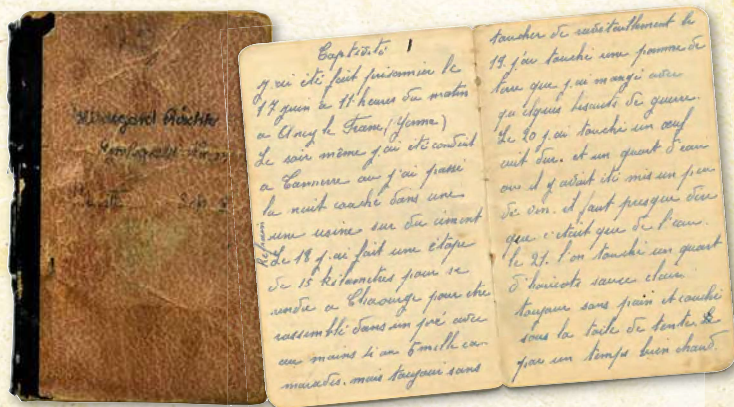 Hildegard
Captivité 1
J'ai été fait prisonnier le
17 juin a 11 heures du matin
a Ancy le Franc (Yonne)
Le soir même j'ai été conduit
a Tannerre ou j'ai passé
la nuit couché dans une
une usine sur du ciment
Le 18 j'ai fait une étape
de 15 kilometres pour se
rendre a Chaource pour etre
rassemblé dans un pré avec
au mains 4 au 5 mille ca-
marades. mais toujour sans
toucher de ravitaillement le
19 j'ai touché une pomme de
tere que j'ai mangé avec
quelques biscuits de guerre.
Le 20 j'ai touché un œuf
cuit dur. et un quart d'eau
ou il y avait été mis un peu
de vin. il faut presque dire
que c'était que de l'eau.
le 21. l'on touché un quart
d'haricots sauce claire
toujour sans pain et couché
sous la toile de tente.
par un temps bien chaud.